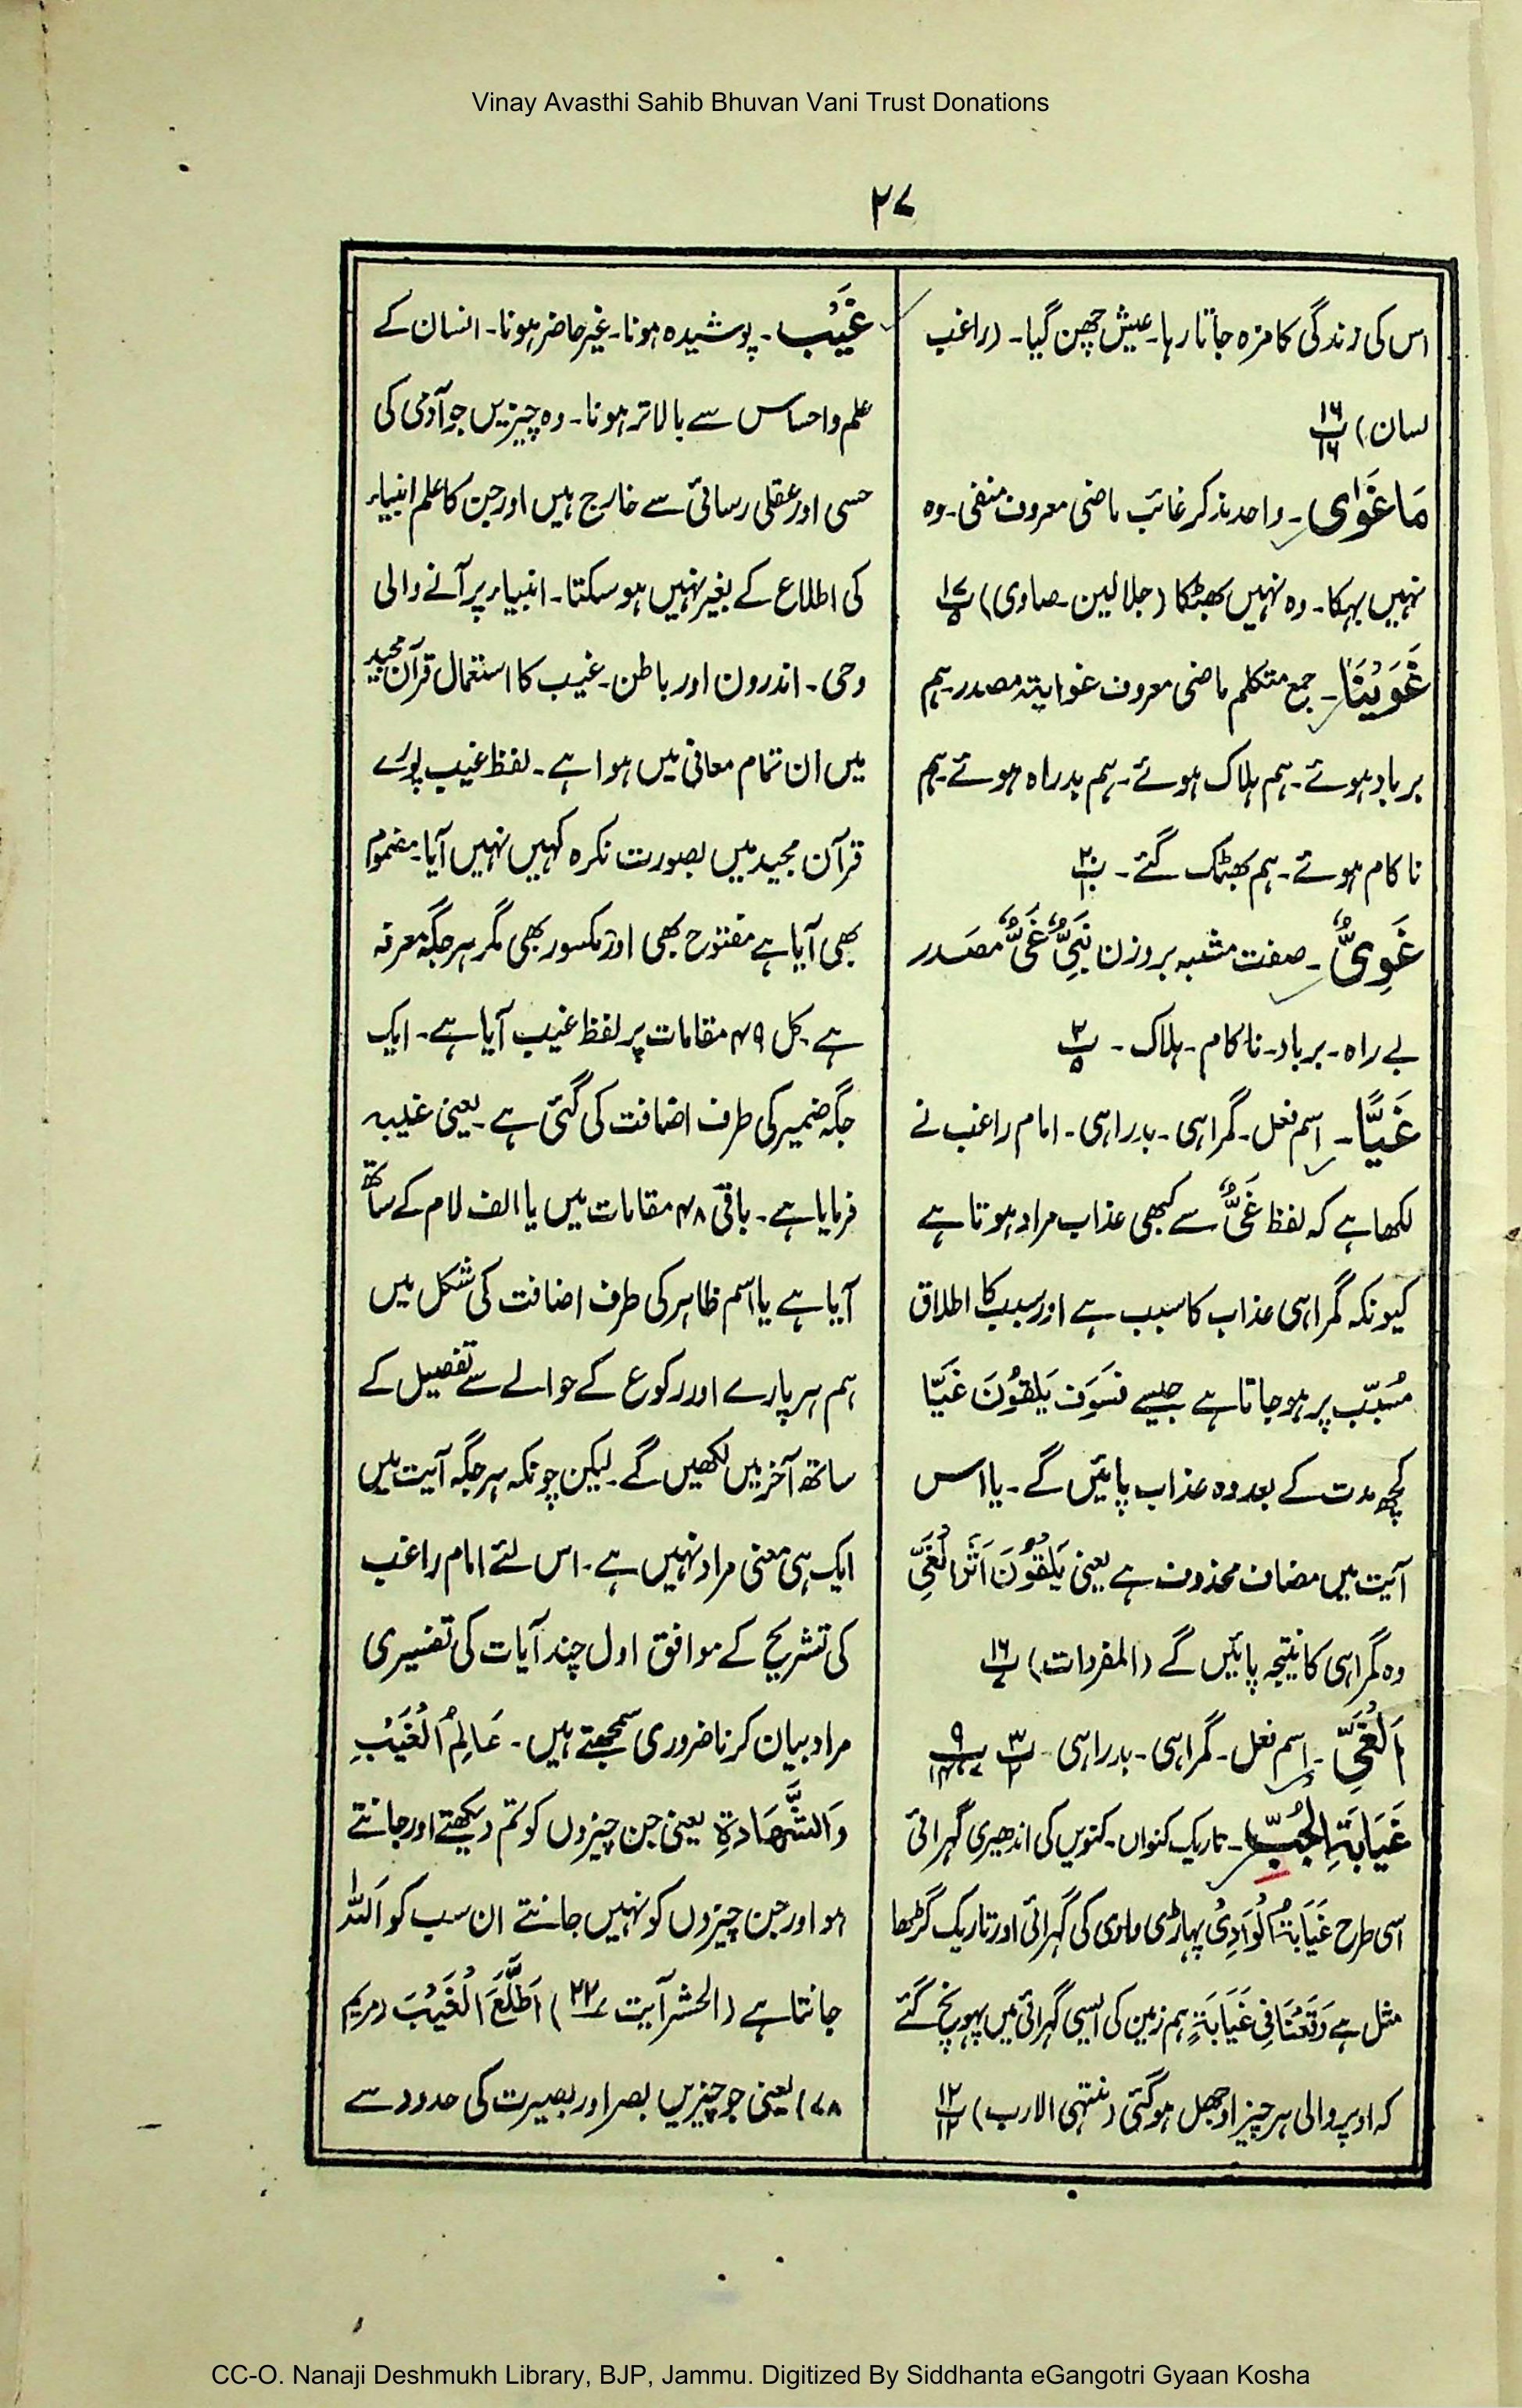 Vinay Avasthi Sahib Bhuvan Vani Trust Donations
۲۷
اس کی زندگی کا مزہ جاتا رہا۔ عیش چھن گیا۔ (راغب
لسان) ۱۶ پ ۱۶
مَا غَوٰای۔ واحد مذکر غائب ماضی معروف منفی۔ وہ
نہیں بہکا۔ وہ نہیں بھٹکا (جلالین۔ صاوی) ۲۷ پ ۵
غَوَیْنَا۔ جمع متکلم ماضی معروف غوایتہ مصدر۔ ہم
برباد ہوئے۔ ہم ہلاک ہوئے۔ ہم بدراہ ہوئے۔ ہم
ناکام ہوئے۔ ہم بھٹک گئے۔ ۲۰ پ ۱۰
غَوِیٌّ۔ صفت مشبہ بروزن نَبِیٌّ غَیٌّ مصدر
بے راہ۔ برباد۔ ناکام۔ ہلاک۔ ۲۰ پ ۵
غَیًّا۔ اسم فعل۔ گمراہی۔ بدراہی۔ امام راغب نے
لکھا ہے کہ لفظ غَیٌّ سے کبھی عذاب مراد ہوتا ہے
کیونکہ گمراہی عذاب کا سبب ہے اور سبب کا اطلاق
مُسَبّب پر ہو جاتا ہے جیسے فَسَوْفَ یَلْقَوْنَ غَیًّا
کچھ مدت کے بعد وہ عذاب پائیں گے۔ یا اس
آیت میں مضاف محذوف ہے یعنی یَلْقَوْنَ اَثَرَ الْغَیِّ
وہ گمراہی کا نتیجہ پائیں گے (المفردات) ۱۶ پ ۷
اَلْغَیِّ۔ اسم فعل۔ گمراہی۔ بدراہی ۳ پ ۲ ۹ پ ۷، ۱۴
غَیَابَۃِ الْجُبِّ۔ تاریک کنواں۔ کنویں کی اندھیری گہرائی
اسی طرح غَیَابَۃُ الْوَادِیْ پہاڑی وادی کی گہرائی اور تاریک گڑھا
مثل ہے وَقَعْنَا فِیْ غَیَابَۃٍ ہم زمین کی ایسی گہرائی میں پہونچ گئے
کہ اوپر والی ہر چیز اوجھل ہو گئی (منتہی الارب) ۱۲ پ ۱۲
غَیْب۔ پوشیدہ ہونا۔ غیر حاضر ہونا۔ انسان کے
علم و احساس سے بالاتر ہونا۔ وہ چیزیں جو آدمی کی
حسی اور عقلی رسائی سے خارج ہیں اور جن کا علم انبیاء
کی اطلاع کے بغیر نہیں ہو سکتا۔ انبیاء پر آنے والی
وحی۔ اندرون اور باطن۔ غیب کا استعمال قرآن مجید
میں ان تمام معانی میں ہوا ہے۔ لفظ غیب پورے
قرآن مجید میں بصورت نکرہ کہیں نہیں آیا۔ مضموم
بھی آیا ہے مفتوح بھی اور مکسور بھی مگر ہر جگہ معرفہ
ہے۔ کل ۴۹ مقامات پر لفظ غیب آیا ہے۔ ایک
جگہ ضمیر کی طرف اضافت کی گئی ہے۔ یعنی غیبہ
فرمایا ہے۔ باقی ۴۸ مقامات میں یا الف لام کے ساتھ
آیا ہے یا اسم ظاہر کی طرف اضافت کی شکل میں
ہم ہر پارے اور رکوع کے حوالے سے تفصیل کے
ساتھ آخر میں لکھیں گے۔ لیکن چونکہ ہر جگہ آیت میں
ایک ہی معنی مراد نہیں ہے۔ اس لئے امام راغب
کی تشریح کے موافق اول چند آیات کی تفسیری
مراد بیان کرنا ضروری سمجھتے ہیں۔ عَالِمُ الْغَیْبِ
وَالشَّهَادَۃِ یعنی جن چیزوں کو تم دیکھتے اور جانتے
ہو اور جن چیزوں کو نہیں جانتے ان سب کو اللہ
جانتا ہے (الحشر آیت ۲۲) اَطَّلَعَ الْغَیْبَ (مریم
۷۸) یعنی جو چیزیں بصر اور بصیرت کی حدود سے
CC-O. Nanaji Deshmukh Library, BJP, Jammu. Digitized By Siddhanta eGangotri Gyaan Kosha